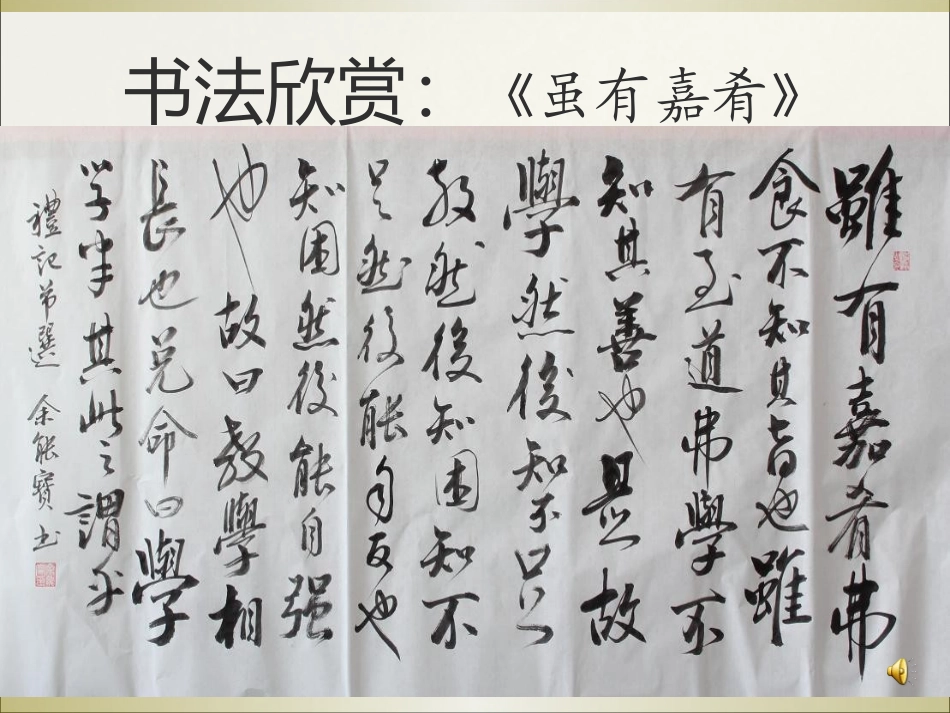 书法欣赏：《虽有嘉肴》
雖有嘉肴弗
食不知其旨也雖
有至道弗學不
知其善也是故
學然後知不足
教然後知困知不
足然後能自反也
知困然後能自强
也故曰教學相
長也兑命曰學
学半其此之謂乎
禮記节選 余能寶书